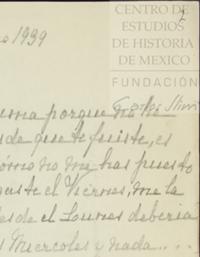 CENTRO DE
ESTUDIOS
DE HISTORIA
DE MEXICO
FUNDACIÓN
Carlos Slim
1939
porque no he
de que te fuiste, es
cómo no me has puesto
el Viernes, me la
desde el Lunes deberia
Miercoles y nada....